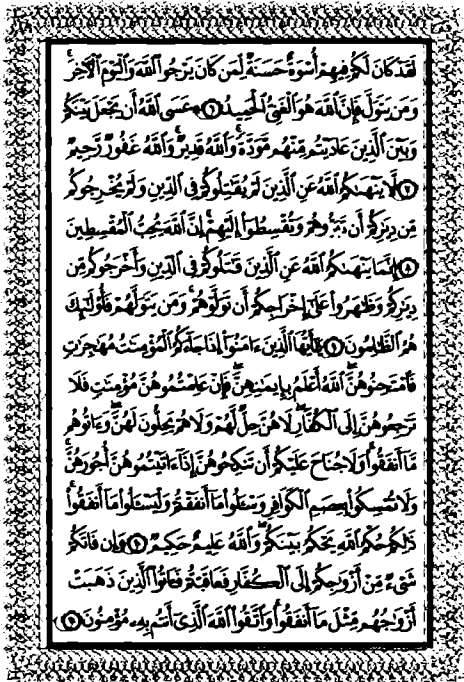 لَقَدْ كَانَ لَكُمْ فِيهِمْ أُسْوَةٌ حَسَنَةٌ لِّمَن كَانَ يَرْجُوا۟ ٱللَّهَ وَٱلْيَوْمَ ٱلْءَاخِرَ ۚ
وَمَن يَتَوَلَّ فَإِنَّ ٱللَّهَ هُوَ ٱلْغَنِىُّ ٱلْحَمِيدُ ٦ عَسَى ٱللَّهُ أَن يَجْعَلَ بَيْنَكُمْ
وَبَيْنَ ٱلَّذِينَ عَادَيْتُم مِّنْهُم مَّوَدَّةً ۚ وَٱللَّهُ قَدِيرٌ ۚ وَٱللَّهُ غَفُورٌ رَّحِيمٌ
٧ لَّا يَنْهَىٰكُمُ ٱللَّهُ عَنِ ٱلَّذِينَ لَمْ يُقَٰتِلُوكُمْ فِى ٱلدِّينِ وَلَمْ يُخْرِجُوكُم
مِّن دِيَٰرِكُمْ أَن تَبَرُّوهُمْ وَتُقْسِطُوٓا۟ إِلَيْهِمْ ۚ إِنَّ ٱللَّهَ يُحِبُّ ٱلْمُقْسِطِينَ
٨ إِنَّمَا يَنْهَىٰكُمُ ٱللَّهُ عَنِ ٱلَّذِينَ قَٰتَلُوكُمْ فِى ٱلدِّينِ وَأَخْرَجُوكُم مِّن
دِيَٰرِكُمْ وَظَٰهَرُوا۟ عَلَىٰٓ إِخْرَاجِكُمْ أَن تَوَلَّوْهُمْ ۚ وَمَن يَتَوَلَّهُمْ فَأُو۟لَٰٓئِكَ
هُمُ ٱلظَّٰلِمُونَ ٩ يَٰٓأَيُّهَا ٱلَّذِينَ ءَامَنُوٓا۟ إِذَا جَآءَكُمُ ٱلْمُؤْمِنَٰتُ مُهَٰجِرَٰتٍ
فَٱمْتَحِنُوهُنَّ ۖ ٱللَّهُ أَعْلَمُ بِإِيمَٰنِهِنَّ ۖ فَإِنْ عَلِمْتُمُوهُنَّ مُؤْمِنَٰتٍ فَلَا
تَرْجِعُوهُنَّ إِلَى ٱلْكُفَّارِ ۖ لَا هُنَّ حِلٌّ لَّهُمْ وَلَا هُمْ يَحِلُّونَ لَهُنَّ ۖ وَءَاتُوهُم
مَّآ أَنفَقُوا۟ ۚ وَلَا جُنَاحَ عَلَيْكُمْ أَن تَنكِحُوهُنَّ إِذَآ ءَاتَيْتُمُوهُنَّ أُجُورَهُنَّ ۚ
وَلَا تُمْسِكُوا۟ بِعِصَمِ ٱلْكَوَافِرِ وَسْـَٔلُوا۟ مَآ أَنفَقْتُمْ وَلْيَسْـَٔلُوا۟ مَآ أَنفَقُوا۟ ۚ
ذَٰلِكُمْ حُكْمُ ٱللَّهِ ۖ يَحْكُمُ بَيْنَكُمْ ۚ وَٱللَّهُ عَلِيمٌ حَكِيمٌ ١٠ وَإِن فَاتَكُمْ
شَىْءٌ مِّنْ أَزْوَٰجِكُمْ إِلَى ٱلْكُفَّارِ فَعَاقَبْتُمْ فَـَٔاتُوا۟ ٱلَّذِينَ ذَهَبَتْ
أَزْوَٰجُهُم مِّثْلَ مَآ أَنفَقُوا۟ ۚ وَٱتَّقُوا۟ ٱللَّهَ ٱلَّذِىٓ أَنتُم بِهِۦ مُؤْمِنُونَ ١١